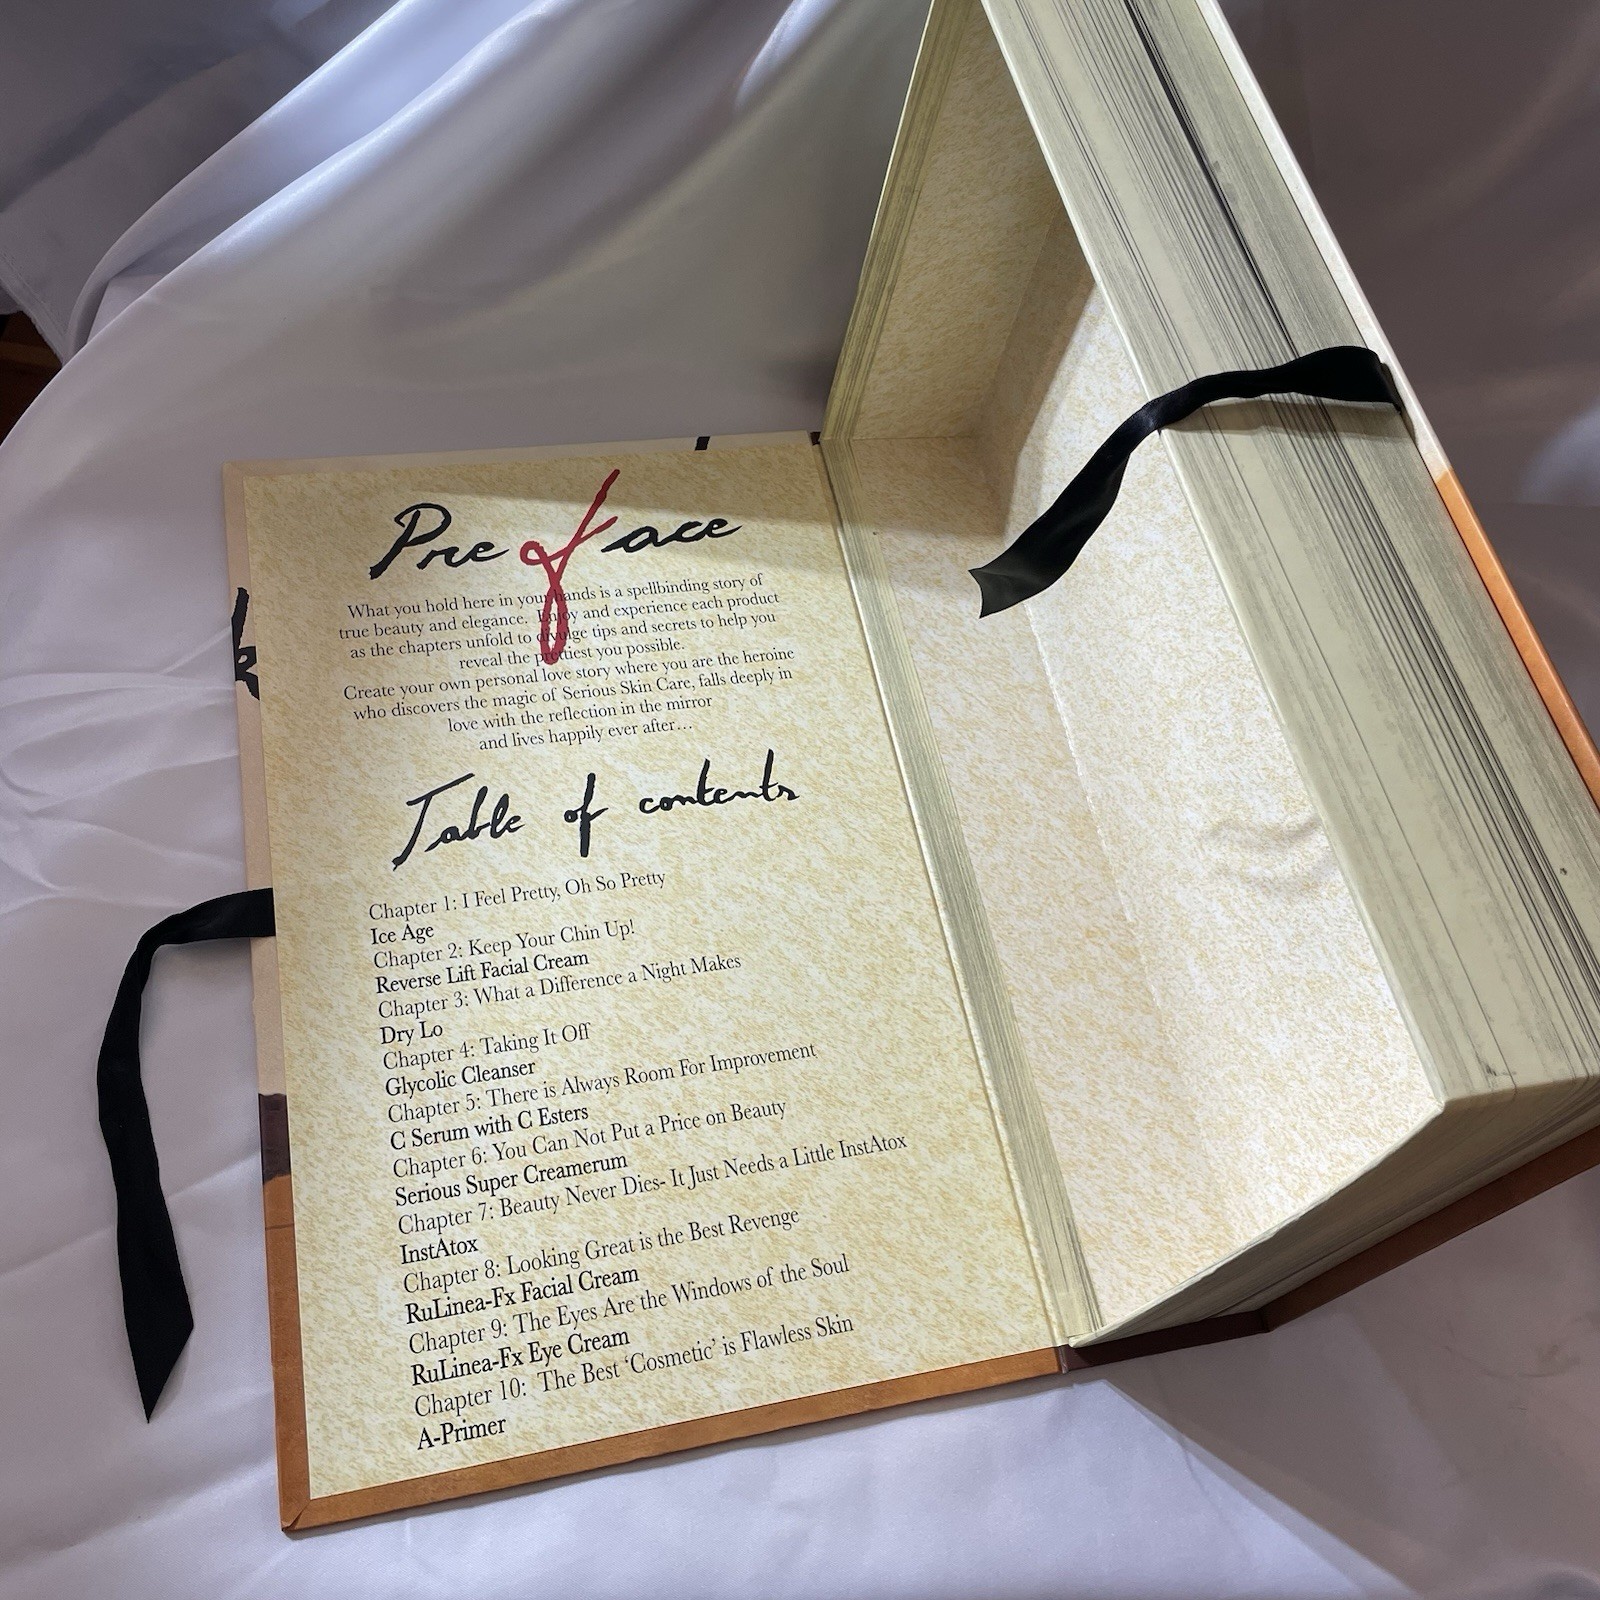 Preface
What you hold here in your hands is a spellbinding story of
true beauty and elegance. Enjoy and experience each product
as the chapters unfold to divulge tips and secrets to help you
reveal the prettiest you possible.
Create your own personal love story where you are the heroine
who discovers the magic of Serious Skin Care, falls deeply in
love with the reflection in the mirror
and lives happily ever after...
Table of contents
Chapter 1: I Feel Pretty, Oh So Pretty
Ice Age
Chapter 2: Keep Your Chin Up!
Reverse Lift Facial Cream
Chapter 3: What a Difference a Night Makes
Dry Lo
Chapter 4: Taking It Off
Glycolic Cleanser
Chapter 5: There is Always Room For Improvement
C Serum with C Esters
Chapter 6: You Can Not Put a Price on Beauty
Serious Super Creamerum
Chapter 7: Beauty Never Dies- It Just Needs a Little InstAtox
InstAtox
Chapter 8: Looking Great is the Best Revenge
RuLinea-Fx Facial Cream
Chapter 9: The Eyes Are the Windows of the Soul
RuLinea-Fx Eye Cream
Chapter 10: The Best ‘Cosmetic’ is Flawless Skin
A-Primer